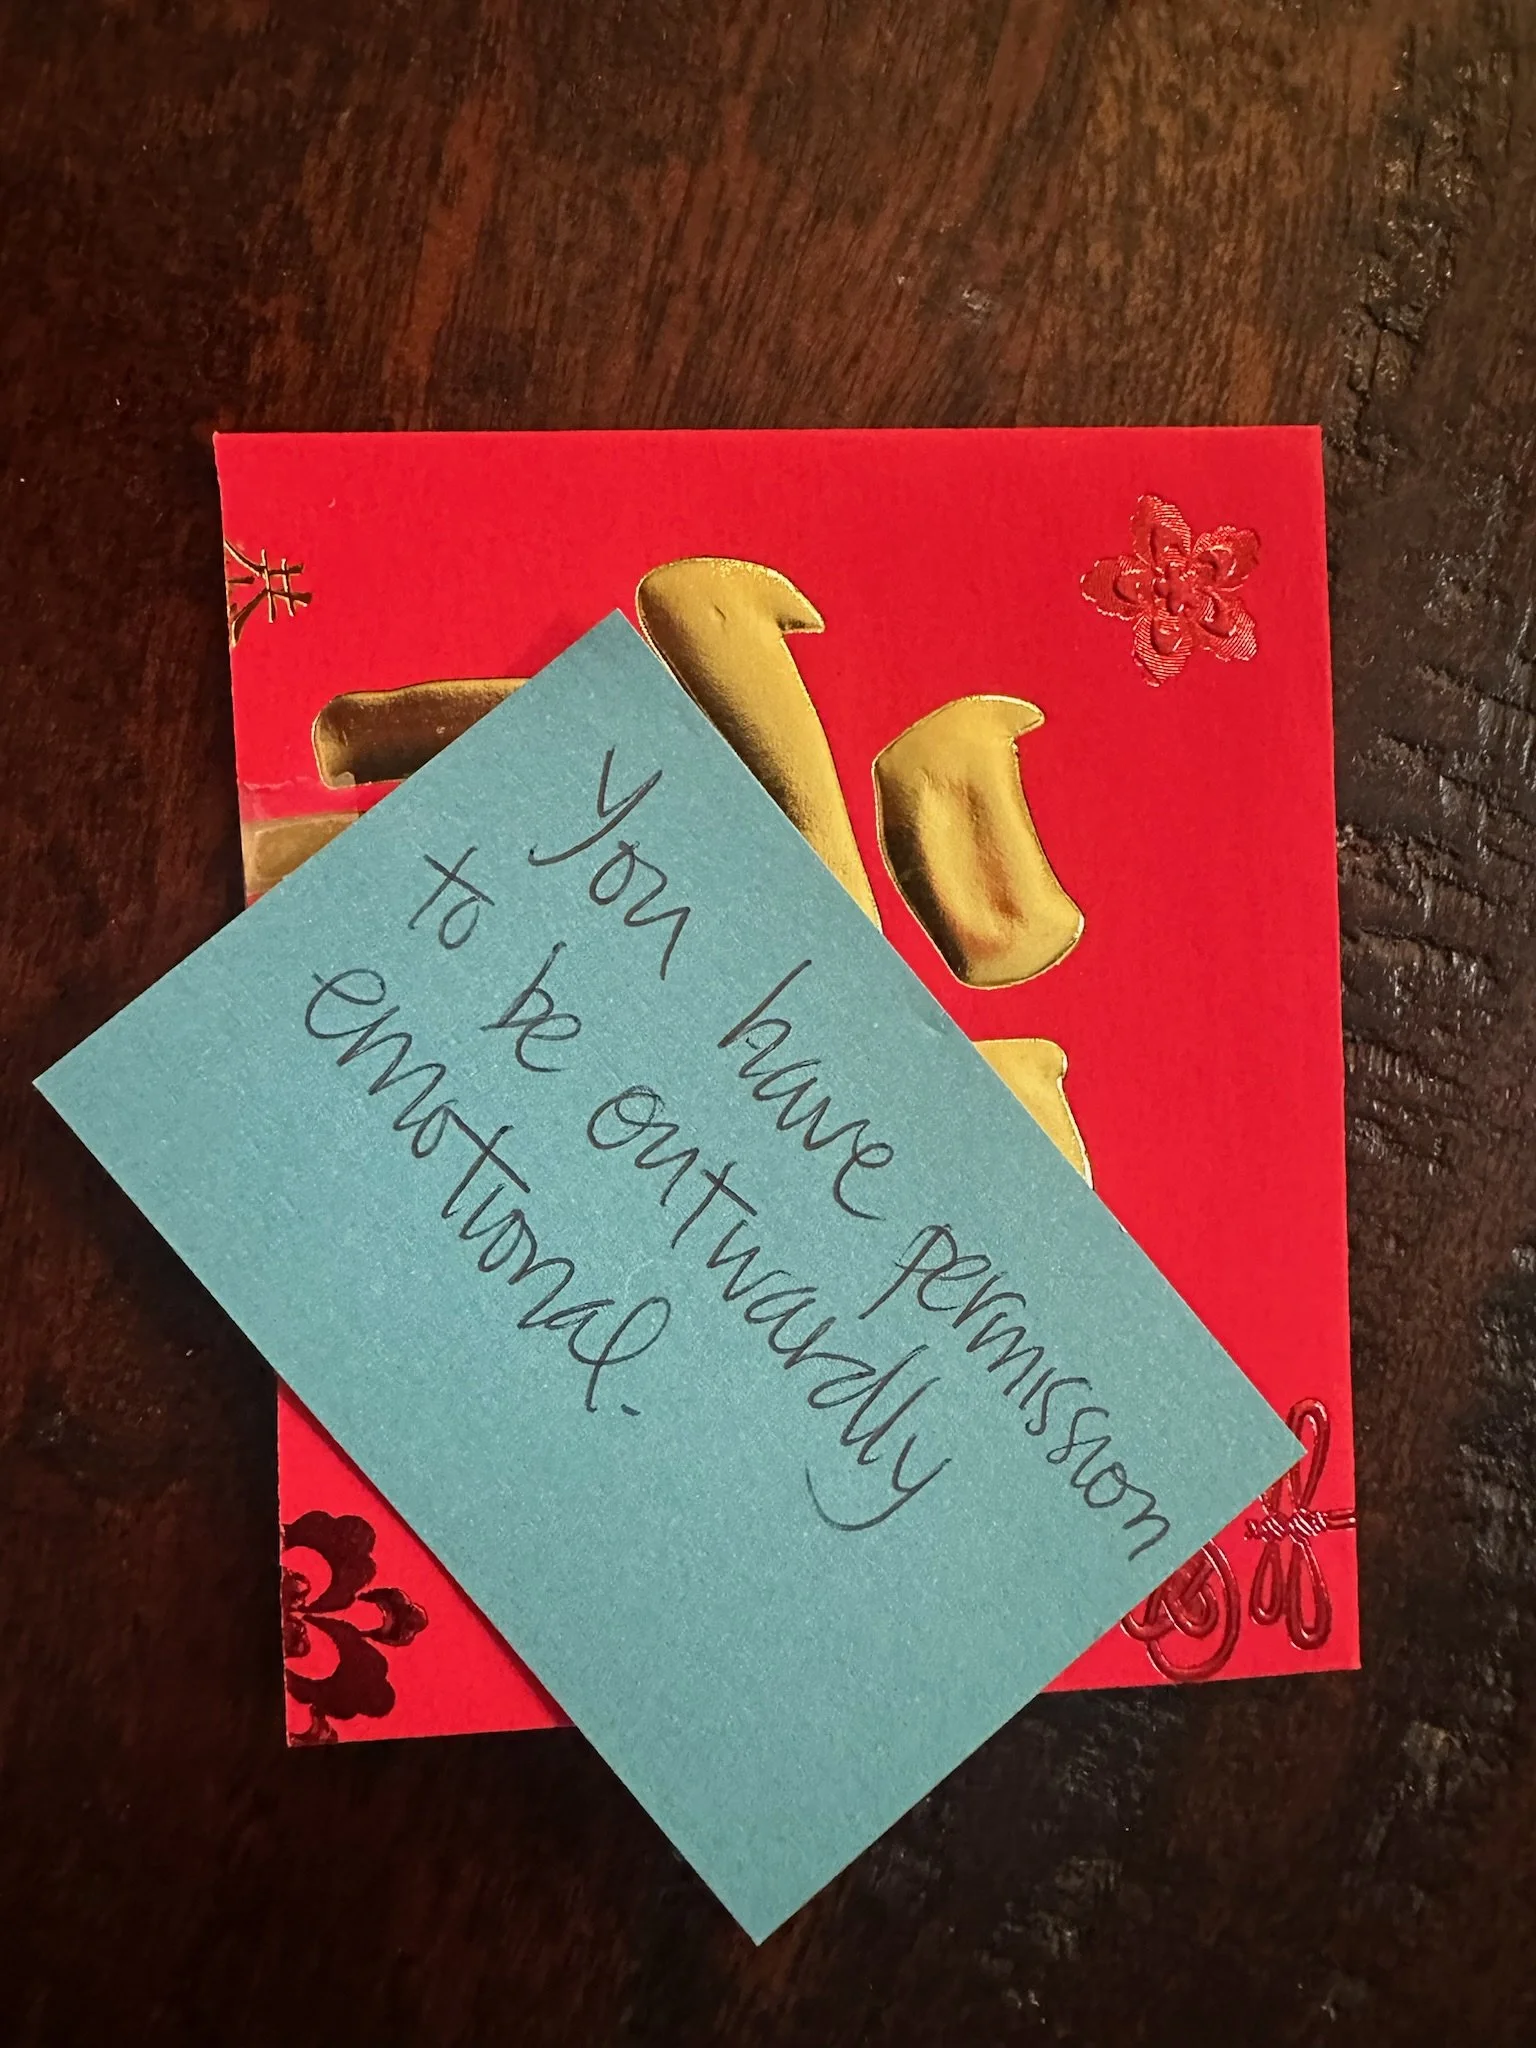 You have permission
to be outwardly
emotional.